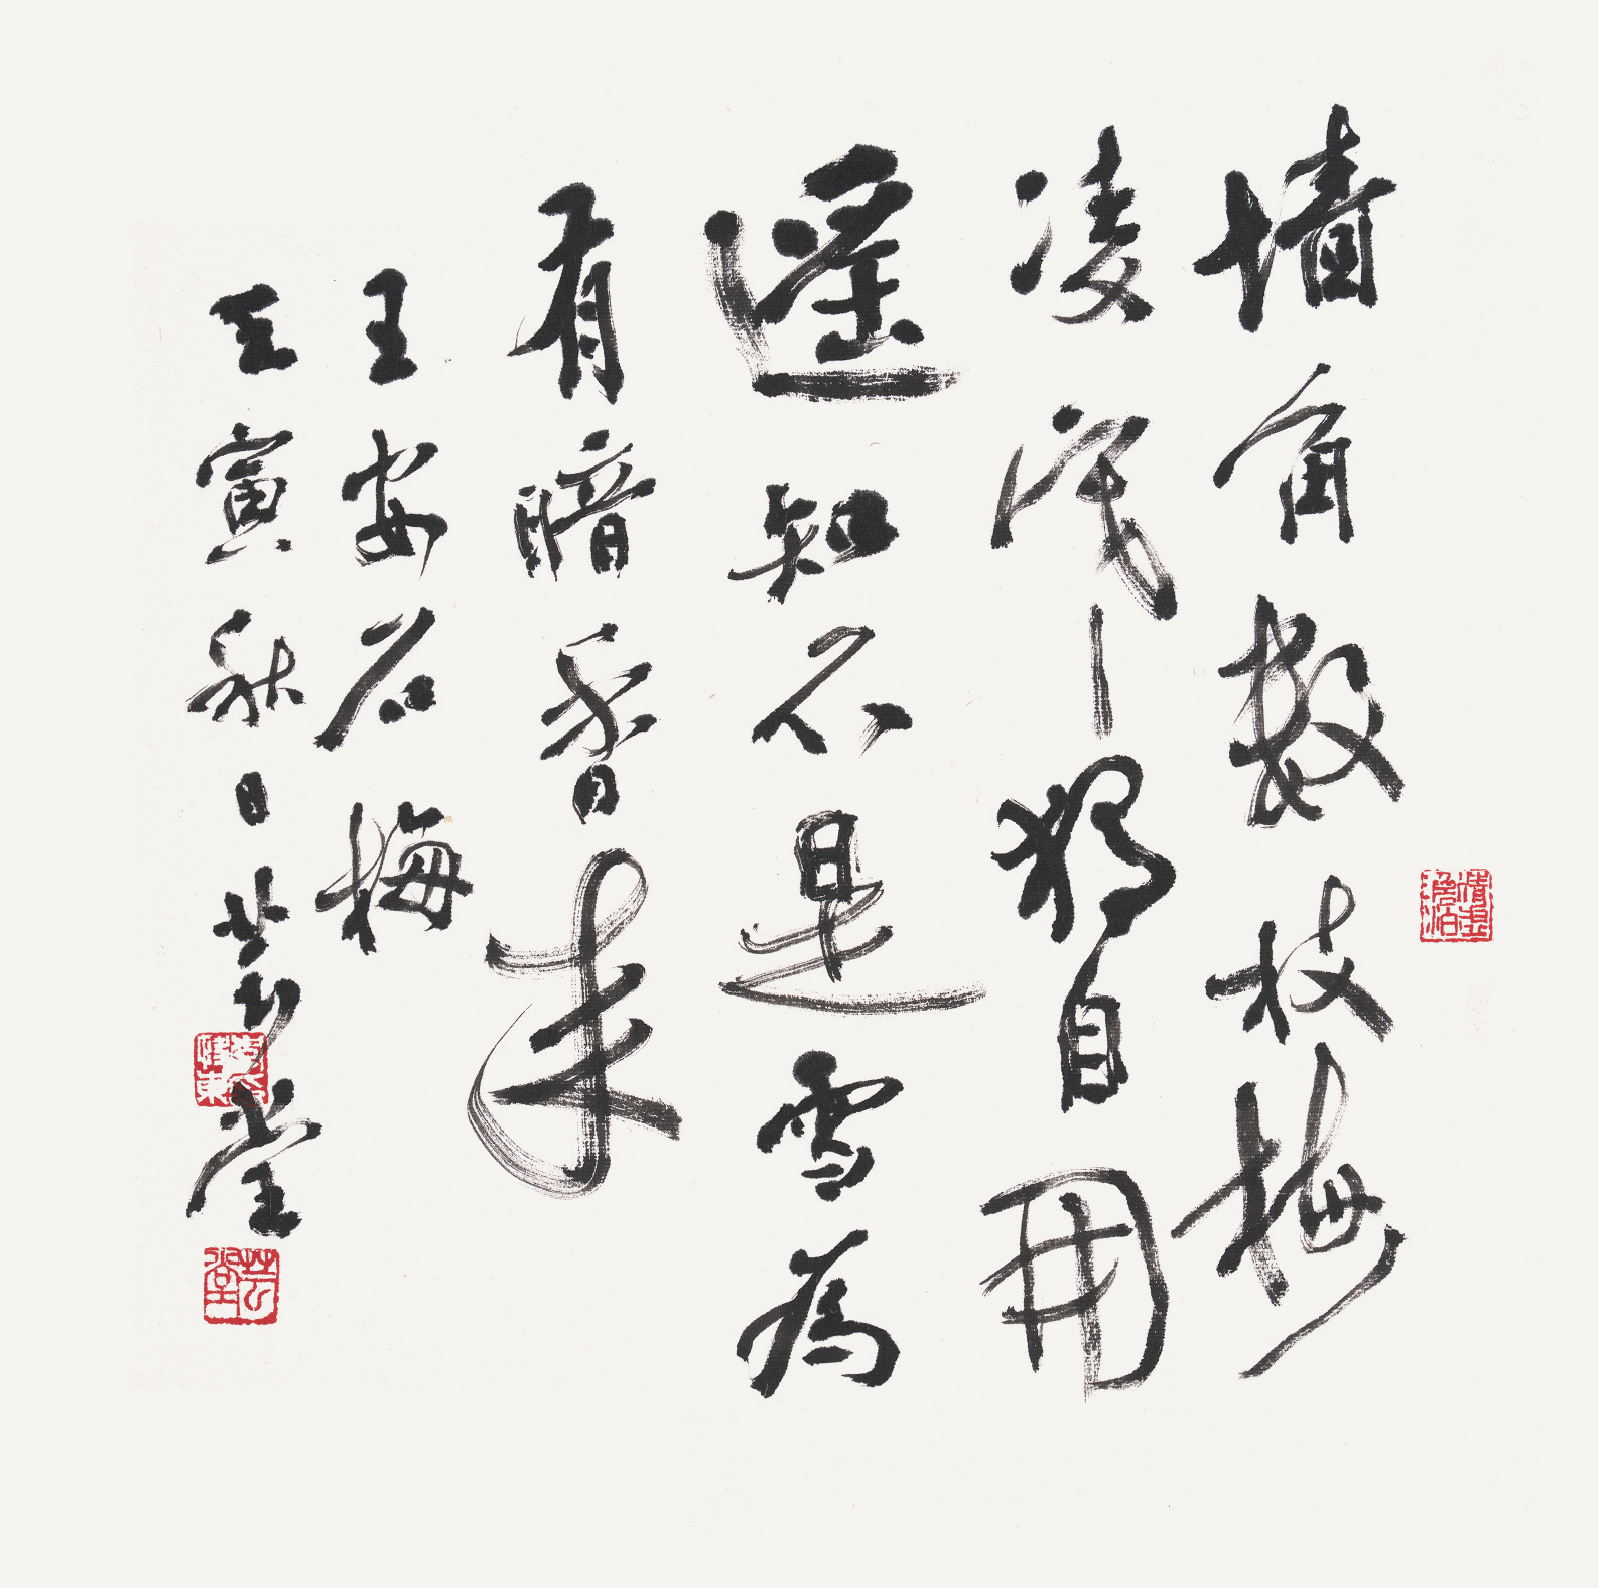 墙角数枝梅
凌寒独自開
遥知不是雪為
有暗香来
王安石梅
壬寅秋日芸堂
芸堂